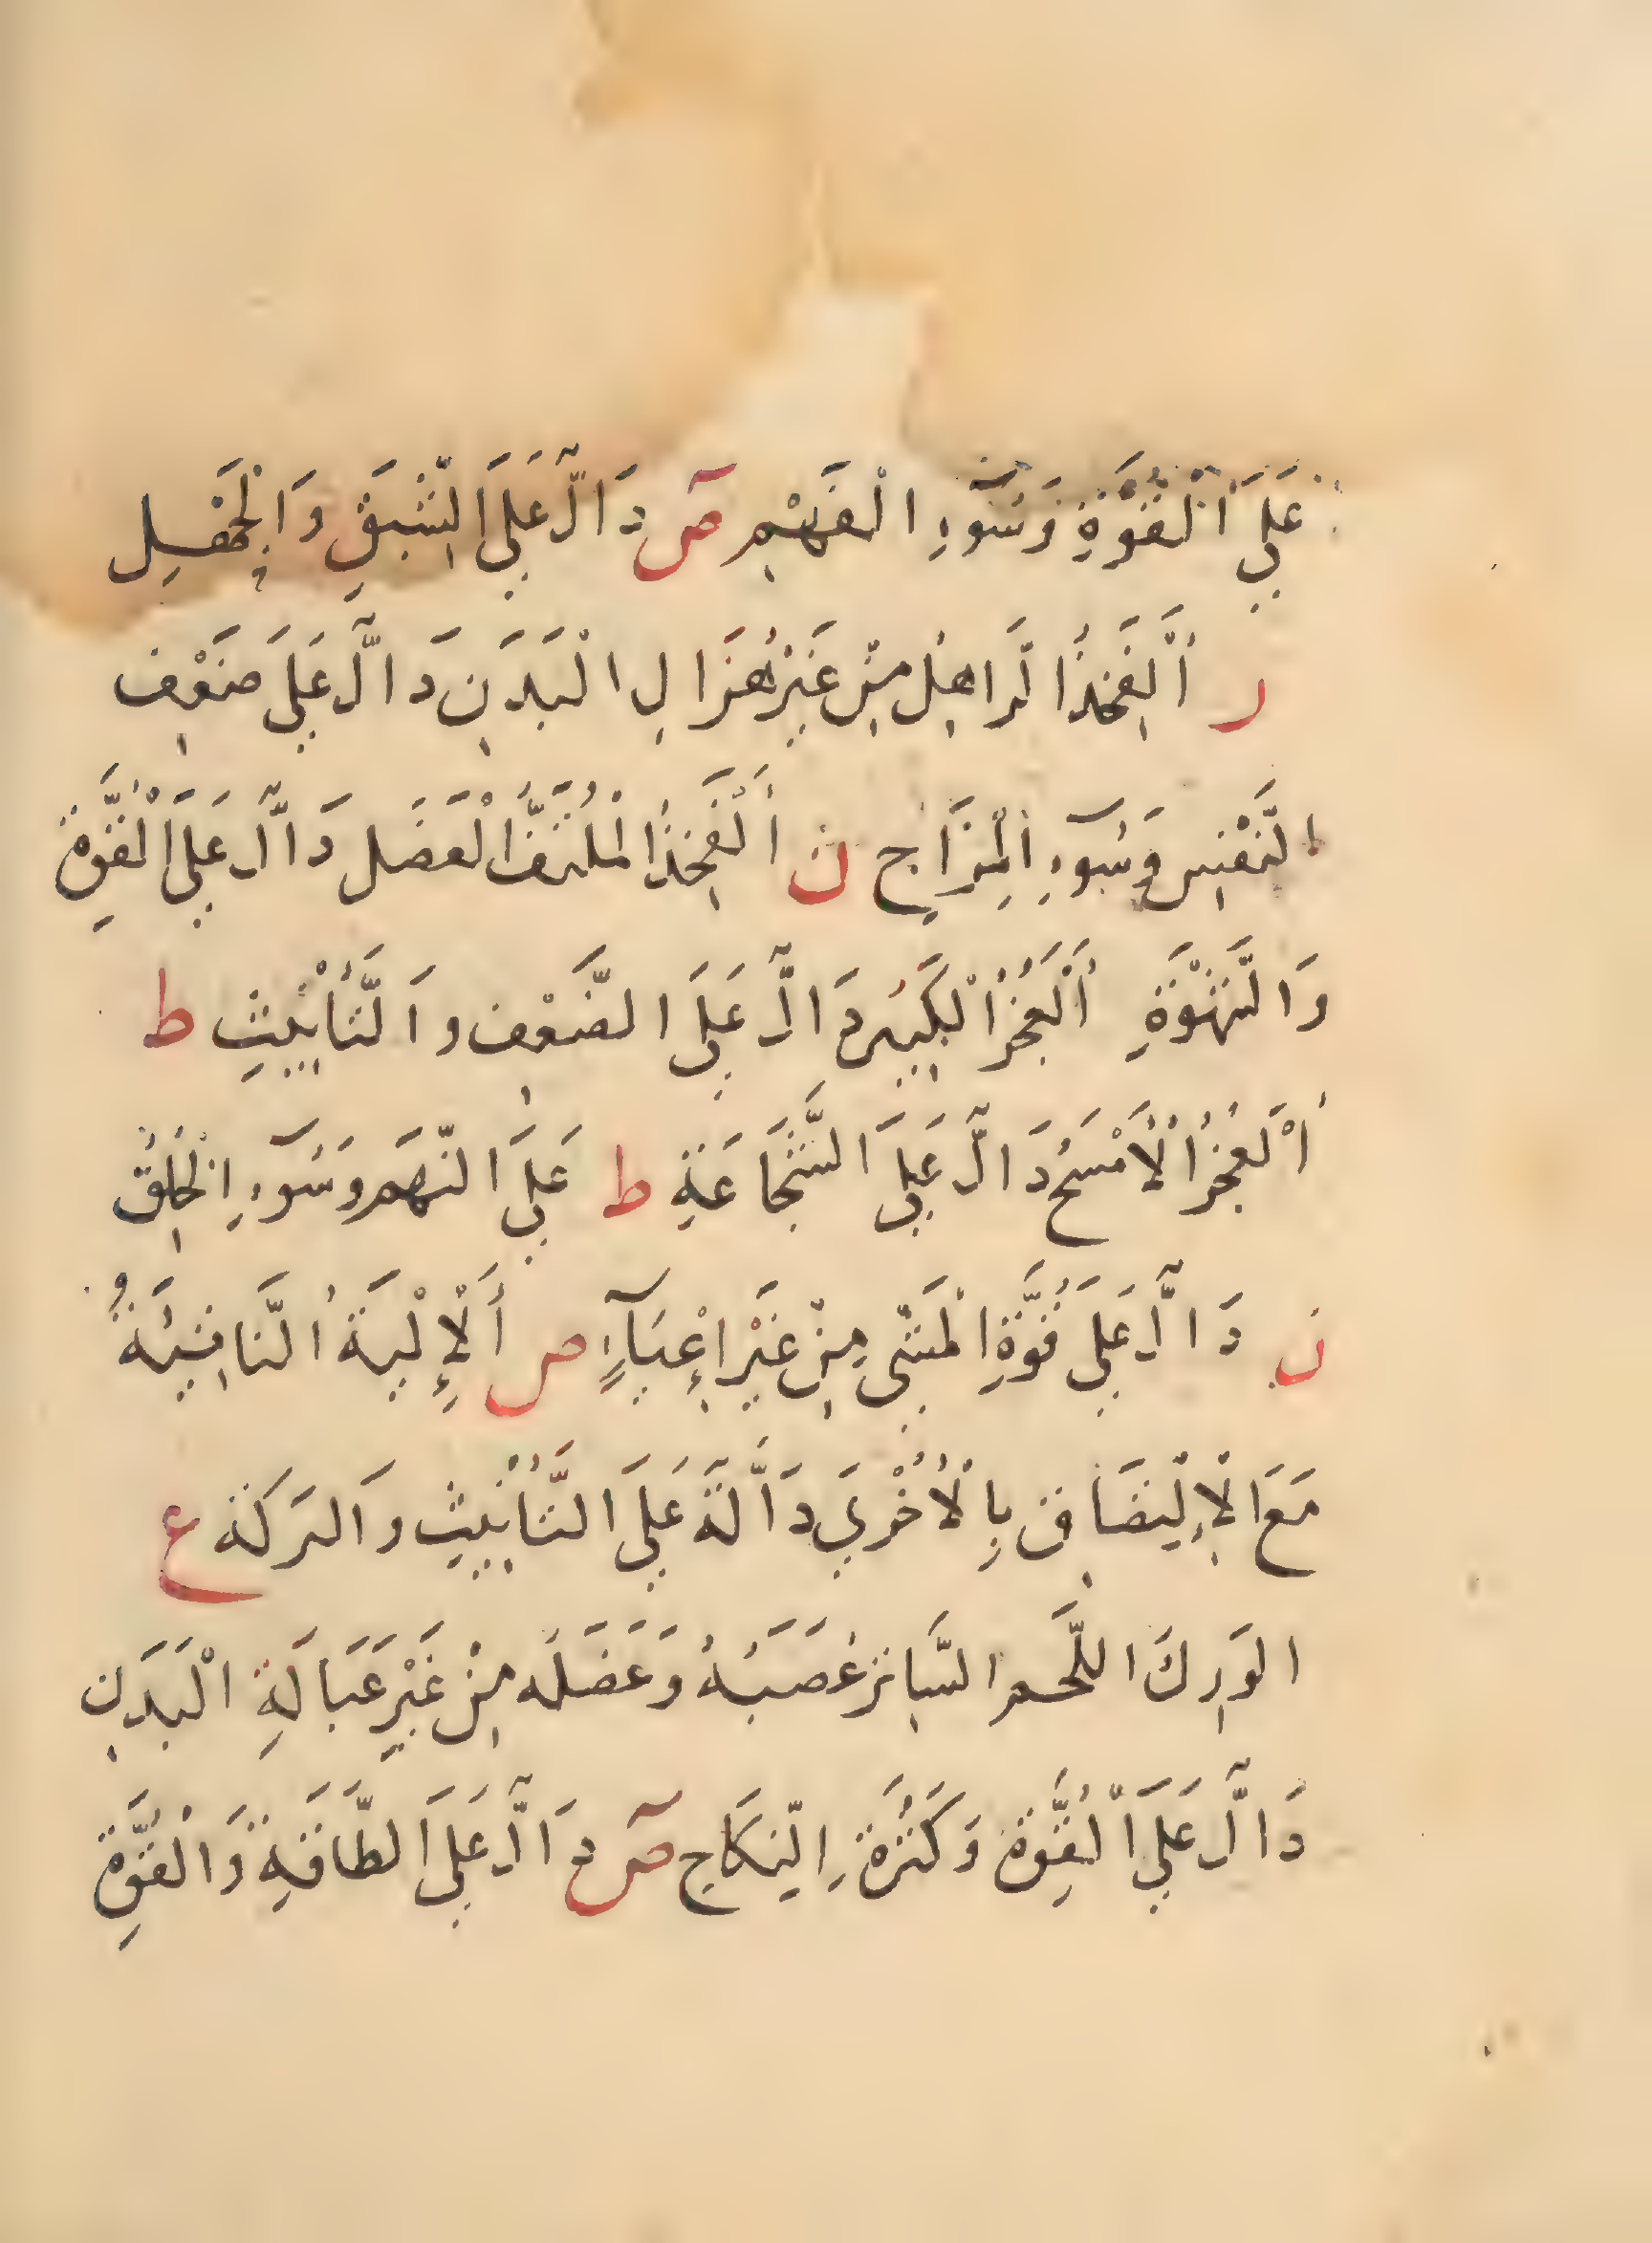 عَلَى الْقُوَّةِ وَسُوٓءِ الْفَهْمِ صٓ دَالّٓ عَلَى الشَّبَقِ وَالْجَهْلِ
ر أَلْفَخِذُ الرَّاهِلُ مِنْ غَيْرِ هُزَالِ الْبَدَنِ دَالّٓ عَلَى ضَعْفِ
النَّفْسِ وَسُوٓءِ الْمِزَاجِ ن أَلْفَخِذُ الْمُلْتَفُّ الْعَضَل دَالّٓ عَلَى الْقُوَّةِ
وَالشَّهْوَةِ أَلْعَجُزُ الْكَبِيرُ دَالّٓ عَلَى الضَّعْفِ وَالتَّأْنِيثِ ط
أَلْعَجُزُ الْأَمْسَحُ دَالّٓ عَلَى الشَّجَاعَةِ ط عَلَى النَّهَمِ وَسُوٓءِ الْخُلُقِ
ن دَالّٓ عَلَى قُوَّةِ الْمَشْيِ مِنْ غَيْرِ إِعْيَآءٍ ص أَلْإِلْيَةُ النَّاشِيَةُ
مَعَ الْإِلْيَصَاقِ بِالْأُخْرَي دَآلَّةٌ عَلَى التَّأْنِيثِ وَالبَرَكَة ع
الوَرِكَ اللَّحم السَّابِر عَصَبَهُ وَعَضَلَه مِنْ غَيْرِ عَبَالَةِ الْبَدَنِ
دَالّٓ عَلَى الْقُوَّةِ وَكَثْرَةِ النِّكَاحِ صٓ دَالّٓ عَلَى الطَّاقَةِ وَالْقُوَّةِ